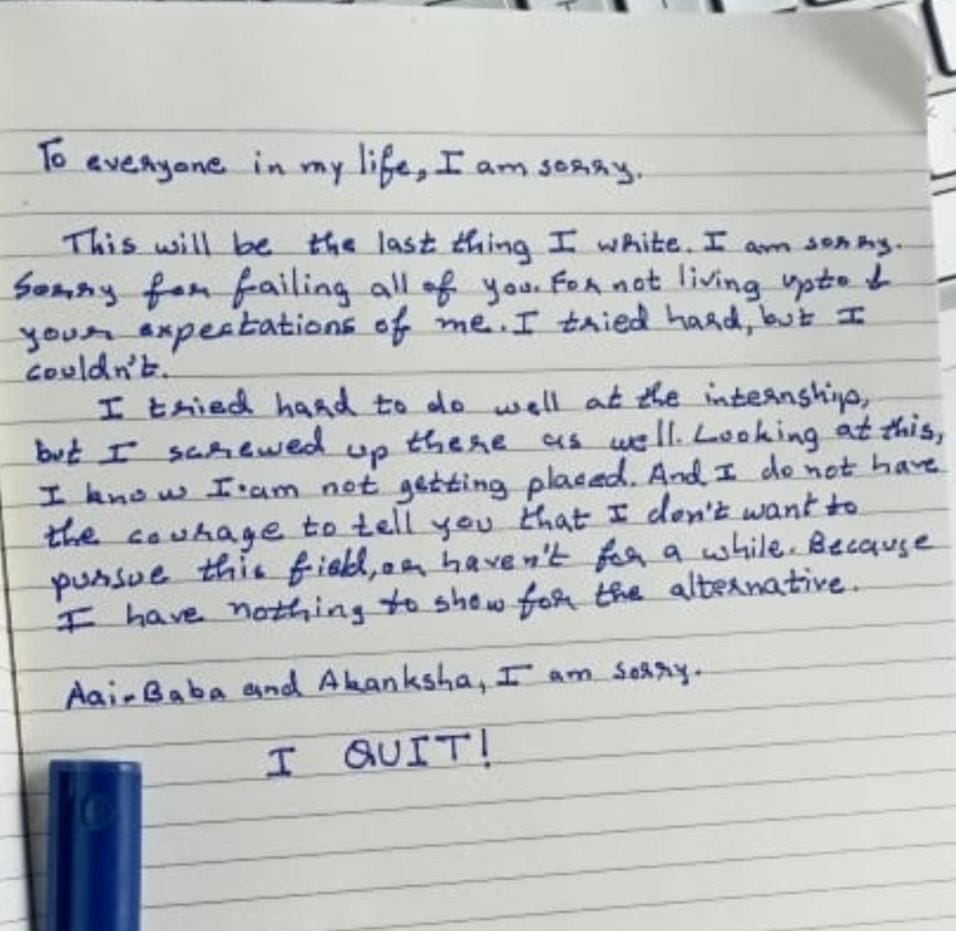 To everyone in my life, I am sorry.
This will be the last thing I write. I am sorry.
Sorry for failing all of you. For not living upto
your expectations of me. I tried hard, but I
couldn't.
I tried hard to do well at the internship,
but I screwed up there as well. Looking at this,
I know I am not getting placed. And I do not have
the courage to tell you that I don't want to
pursue this field, or haven't for a while. Because
I have nothing to show for the alternative.
Aai-Baba and Akanksha, I am sorry.
I QUIT!